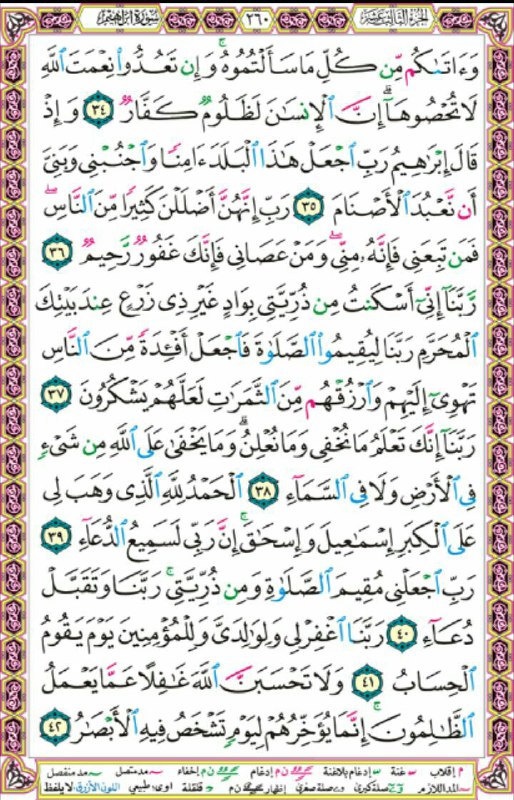 الجزء الثالث عشر ٢٦٠ سورة ابراهيم
وَءَاتَىٰكُم مِّن كُلِّ مَا سَأَلْتُمُوهُ ۚ وَإِن تَعُدُّوا۟ نِعْمَتَ ٱللَّهِ
لَا تُحْصُوهَآ ۗ إِنَّ ٱلْإِنسَـٰنَ لَظَلُومٌ كَفَّارٌ ٣٤ وَإِذْ
قَالَ إِبْرَٰهِيمُ رَبِّ ٱجْعَلْ هَـٰذَا ٱلْبَلَدَ ءَامِنًا وَٱجْنُبْنِى وَبَنِىَّ
أَن نَّعْبُدَ ٱلْأَصْنَامَ ٣٥ رَبِّ إِنَّهُنَّ أَضْلَلْنَ كَثِيرًا مِّنَ ٱلنَّاسِ ۖ
فَمَن تَبِعَنِى فَإِنَّهُۥ مِنِّى ۖ وَمَنْ عَصَانِى فَإِنَّكَ غَفُورٌ رَّحِيمٌ ٣٦
رَّبَّنَآ إِنِّىٓ أَسْكَنتُ مِن ذُرِّيَّتِى بِوَادٍ غَيْرِ ذِى زَرْعٍ عِندَ بَيْتِكَ
ٱلْمُحَرَّمِ رَبَّنَا لِيُقِيمُوا۟ ٱلصَّلَوٰةَ فَٱجْعَلْ أَفْـِٔدَةً مِّنَ ٱلنَّاسِ
تَهْوِىٓ إِلَيْهِمْ وَٱرْزُقْهُم مِّنَ ٱلثَّمَرَٰتِ لَعَلَّهُمْ يَشْكُرُونَ ٣٧
رَبَّنَآ إِنَّكَ تَعْلَمُ مَا نُخْفِى وَمَا نُعْلِنُ ۗ وَمَا يَخْفَىٰ عَلَى ٱللَّهِ مِن شَىْءٍ
فِى ٱلْأَرْضِ وَلَا فِى ٱلسَّمَآءِ ٣٨ ٱلْحَمْدُ لِلَّهِ ٱلَّذِى وَهَبَ لِى
عَلَى ٱلْكِبَرِ إِسْمَـٰعِيلَ وَإِسْحَـٰقَ ۚ إِنَّ رَبِّى لَسَمِيعُ ٱلدُّعَآءِ ٣٩
رَبِّ ٱجْعَلْنِى مُقِيمَ ٱلصَّلَوٰةِ وَمِن ذُرِّيَّتِى ۚ رَبَّنَا وَتَقَبَّلْ
دُعَآءِ ٤٠ رَبَّنَا ٱغْفِرْ لِى وَلِوَٰلِدَىَّ وَلِلْمُؤْمِنِينَ يَوْمَ يَقُومُ
ٱلْحِسَابُ ٤١ وَلَا تَحْسَبَنَّ ٱللَّهَ غَـٰفِلًا عَمَّا يَعْمَلُ
ٱلظَّـٰلِمُونَ ۚ إِنَّمَا يُؤَخِّرُهُمْ لِيَوْمٍ تَشْخَصُ فِيهِ ٱلْأَبْصَـٰرُ ٤٢
م إقلاب غنة إدغام بلاغنة ن م إدغام ن م إخفاء مد متصل مد منفصل
المد اللازم صلة كبرى صلة صغرى إظهار ن م قلقلة اوى طبيعي اللون الأزرق لا يلفظ